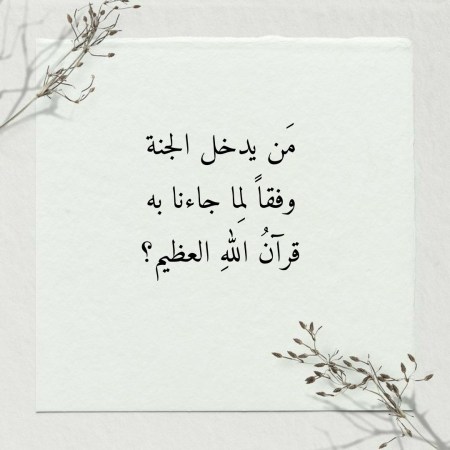 مَن يدخل الجنة
وفقاً لِما جاءنا به
قرآنُ اللهِ العظيم؟